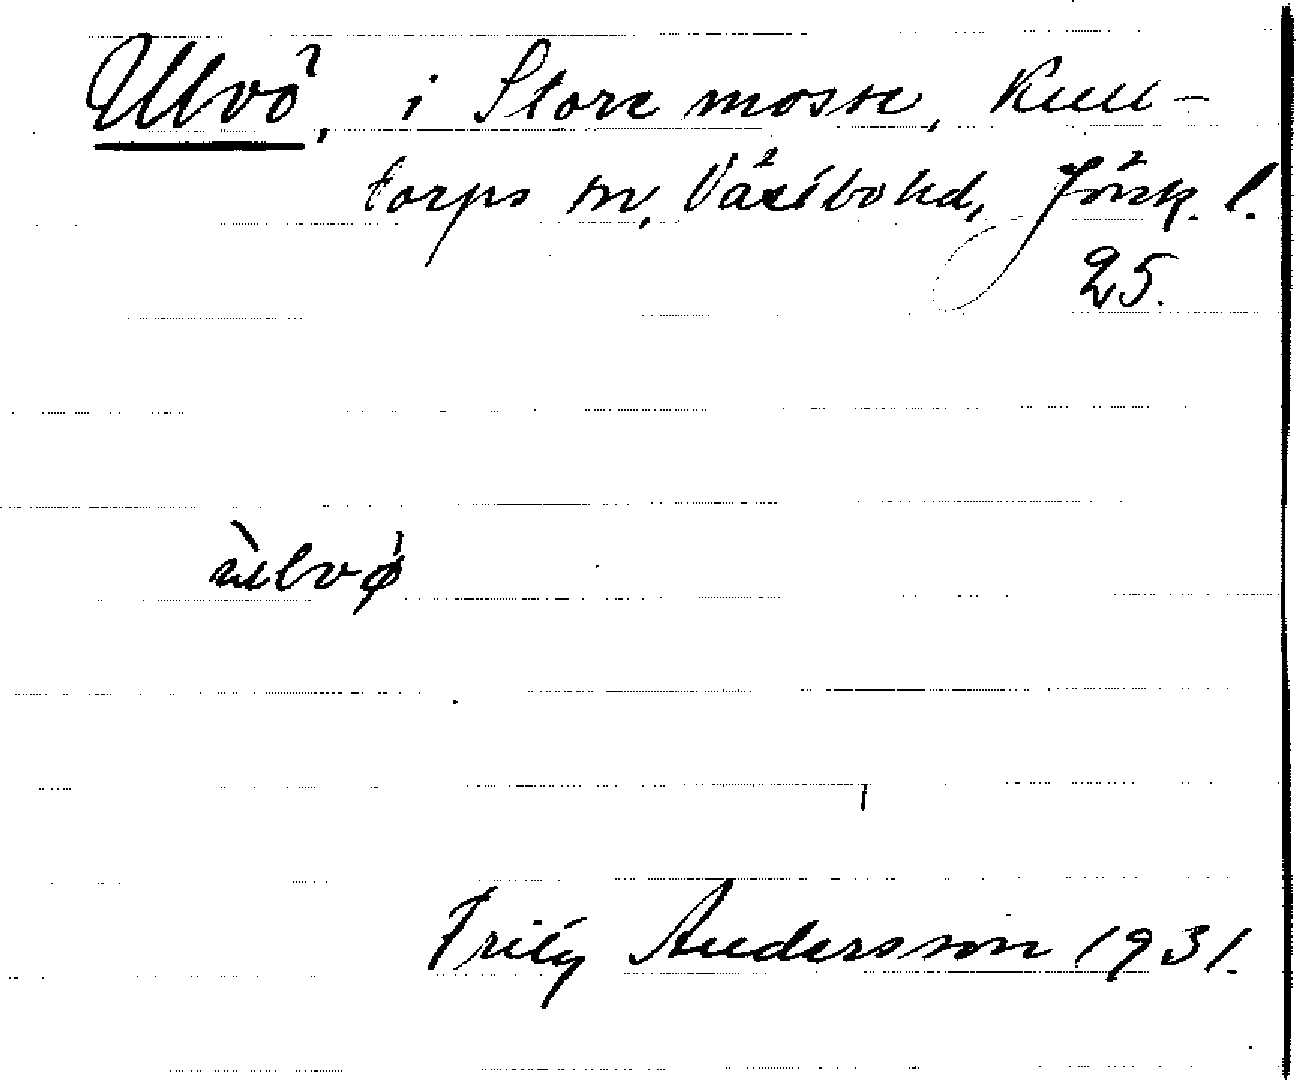 Ulvö, i Store mosse, Kull-
torps sn, Västbo hd, Jönk. l.
25.
ùlvø̀
Fritz Andersson 1931.